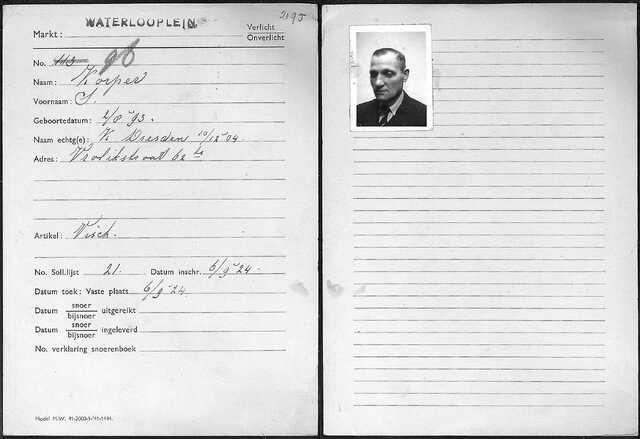 2195
WATERLOOPLEIN.
Markt :
Verlicht
Onverlicht
No. 113 98
Naam : Korper
Voornaam : S.
Geboortedatum : 2/8 '93.
Naam echtg(e) : K Dresden 10/12 '04.
Adres : Vrolikstraat 62 hs
Artikel : Visch.
No. Soll.lijst 21. Datum inschr. 6/9 - 24.
Datum toek : Vaste plaats 6/9 - 24
Datum snoer / bijsnoer uitgereikt
Datum snoer / bijsnoer ingeleverd
No. verklaring snoerenboek
Model M.W.